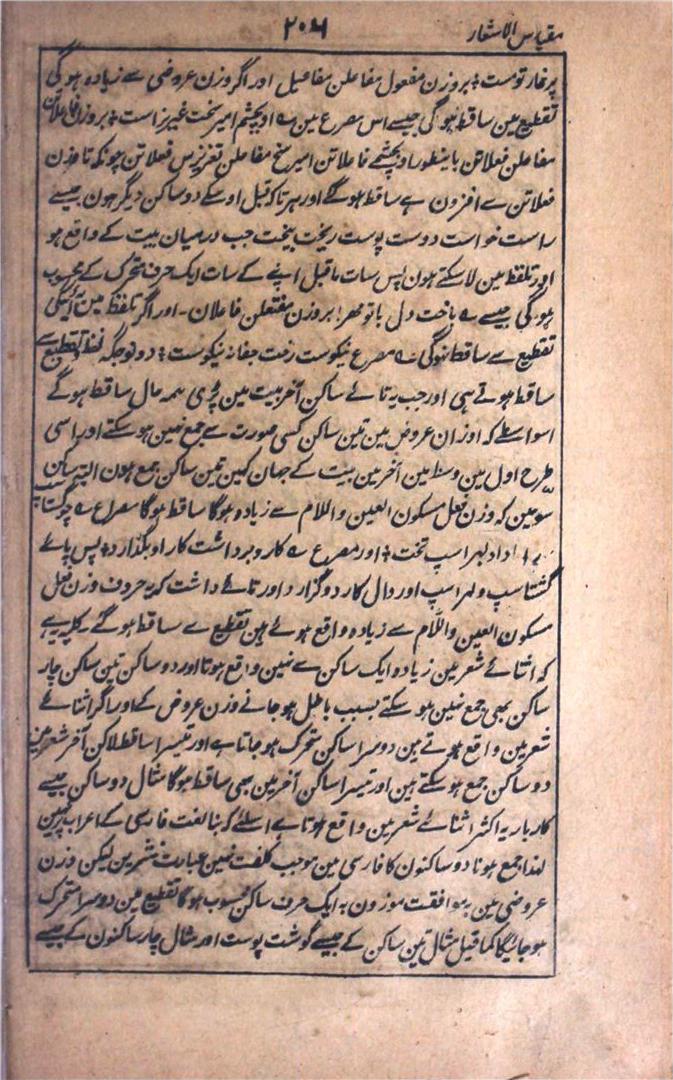 مقیاس الاشعار
۲۰۵
پر غار تو ست ؛ بر وزن مفعول مفاعلن مفاعیل اور اگر وزن عروضی سے زیادہ ہو گی
تقطیع مین ساقط ہو گی جیسے اس مصرع مین ے او بچشم امیر سخت غیر زاست ؛ بر وزن فاعلاتن
مفاعلن فعلاتن باینطور او بچشمے فاعلاتن امیر سخ مفاعلن تغزیرس فعلاتن چونکہ تا وزن
فعلاتن سے افزون ہے ساقط ہو گے اور ہر تا کہ قبل اوسکے دو ساکن دیگر ہون جیسے
راست خواست دوست پوست ریخت بیخت جب درمیان بیت کے واقع ہو
اور تلفظ مین لا سکتے ہون پس سات ماقبل اپنے کے سات ایک حرف متحرک کے محسوب
ہو گی جیسے ے باخت دل با تو مہرا بر وزن مفتعلن فاعلان ۔ اور اگر تلفظ مین نہ آئیگی
تقطیع سے ساقط ہو گی ے مصرع نیکوست رخت جفانہ نیکوست ؛ دونو جگہ لفظ تقطیع سے
ساقط ہوتے ہی اور جب یہ تائے ساکن آخر بیت مین پڑی ہمہ حال ساقط ہو گے
اسواسطے کہ اوزان عروض مین تین ساکن کسی صورت سے جمع نہین ہو سکتے اور اسی
طرح اول مین وسط مین آخر مین بیت کے جہان کہین تین ساکن جمع ہون البتہ ساکن
سومین کہ وزن فعل سکون العین واللام سے زیادہ ہو گا ساقط ہو گا مصراع ے چو گشتاسپ
را داد لہراسپ تخت ؛ اور مصرع ے کارو برداشت کار او بگذارد ؛ پس پائے
گشتاسپ و لہراسپ اور دال کارد و گزارد اور تائے داشت کہ یہ حروف وزن فعل
سکون العین واللام سے زیادہ واقع ہوئے ہین تقطیع سے ساقط ہو گے ۔ کلیہ یہ ہے
کہ اثنائے شعر مین زیادہ ایک ساکن سے نہین واقع ہوتا اور دو ساکن تین ساکن چار
ساکن بھی جمع نہین ہو سکتے بسبب باطل ہو جانے وزن عروض کے اور اگر اثنائے
شعر مین واقع ہوتے مین دوسرا ساکن متحرک ہو جاتا ہے اور تیسرا ساقط لاکن آخر شعر مین
دو ساکن جمع ہو سکتے ہین اور تیسرا ساکن آخر مین بھی ساقط ہو گا مثال دو ساکن جیسے
کار بار یہ اکثر اثنائے شعر مین واقع ہوتا ہے اسلئے کہ بنا لغت فارسی کے اعراب پر نہین
لہذا جمع ہونا دو ساکنون کا فارسی مین موجب کلفت نہین عبارت نثر مین لیکن وزن
عروضی مین بموافقت موزون بہ ایک حرف ساکن محسوب ہو گا تقطیع مین دوسرا متحرک
ہو جائیگا کما قیل مثال تین ساکن کے جیسے گوشت پوست اور مثال چار ساکنون کے جیسے